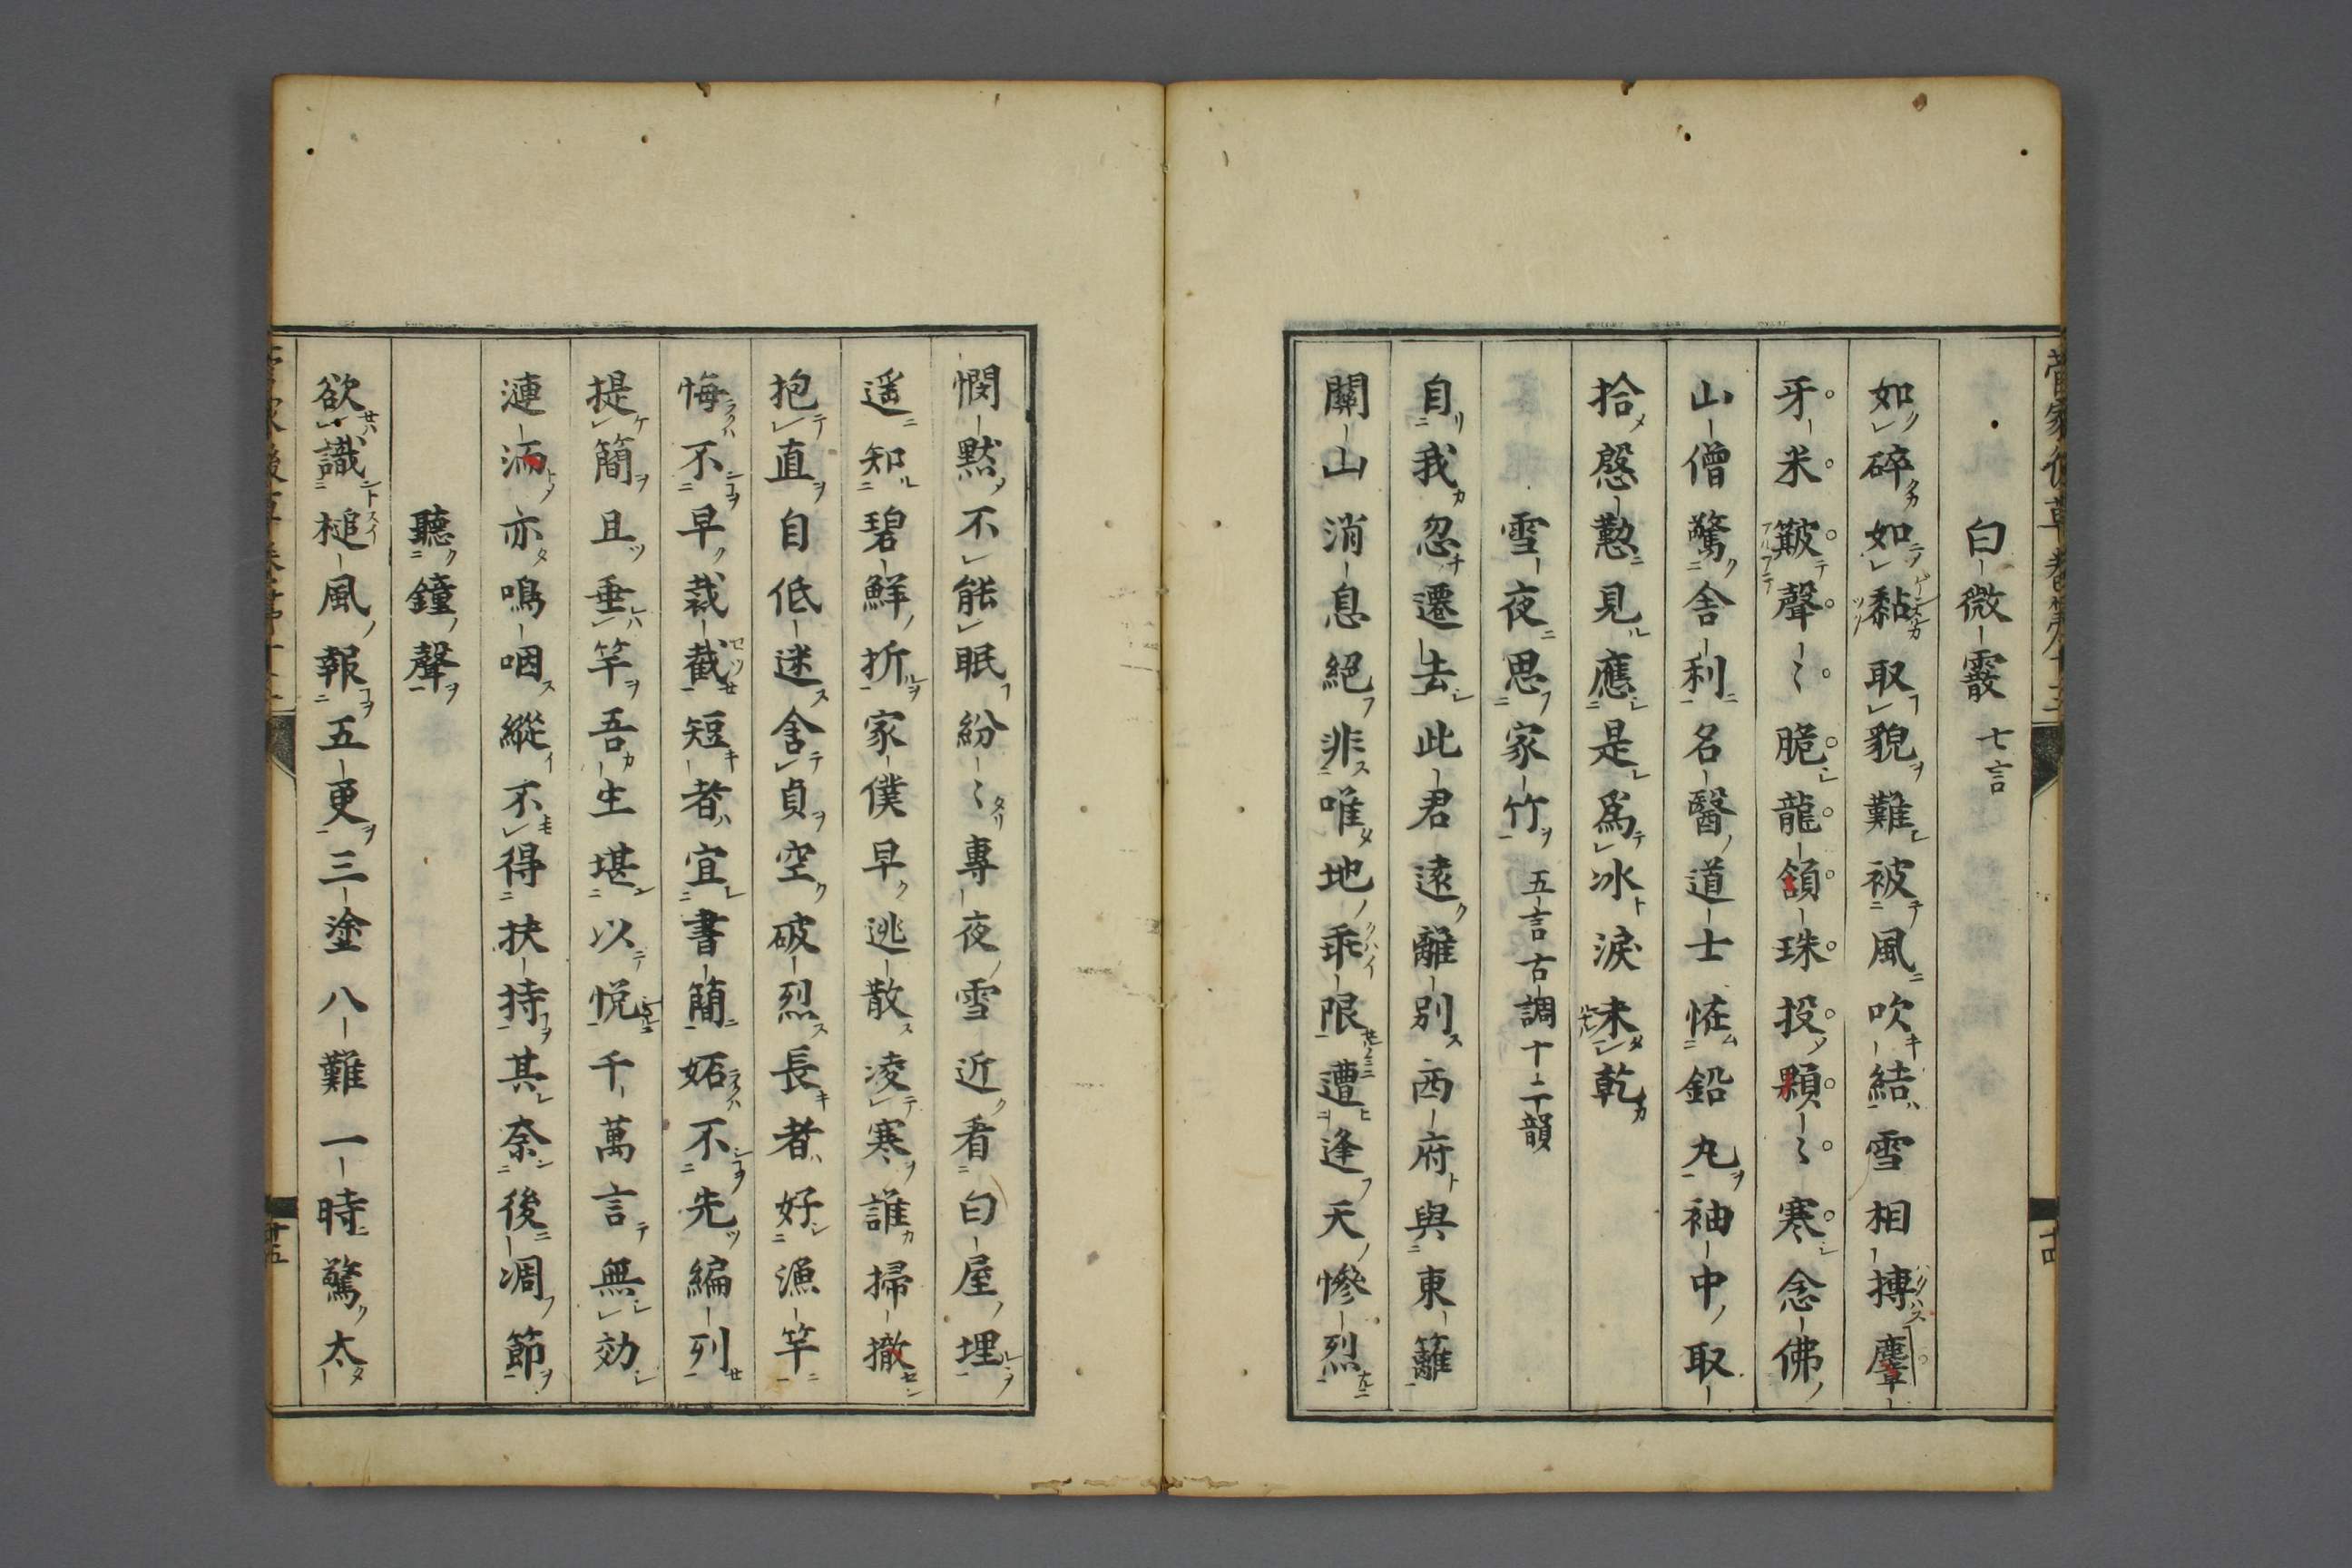 白微霰 七言
如碎如黏取貌難被風吹結雪相搏麞
牙米簸聲〻脆龍頷珠投顆〻寒念佛
山僧驚舎利名醫道士恠鉛丸袖中取
拾慇懃見應是爲氷淚未乾
雪夜思家竹 五言古調十二韻
自我忽遷去此君遠離別西府與東籬
關山消息絕非唯地乖限遭逢天慘烈
憫黙不能眠紛〻專夜雪近看白屋埋
遥知碧鮮折家僕早逃散凌寒誰掃撤
抱直自低迷含貞空破烈長者好漁竿
悔不早裁截短者宜書簡妬不先編列
提簡且垂竿吾生堪以悦千萬言無効
漣洏亦鳴咽縱不得扶持其奈後凋節
聽鐘聲
欲識槌風報五更三塗八難一時驚太